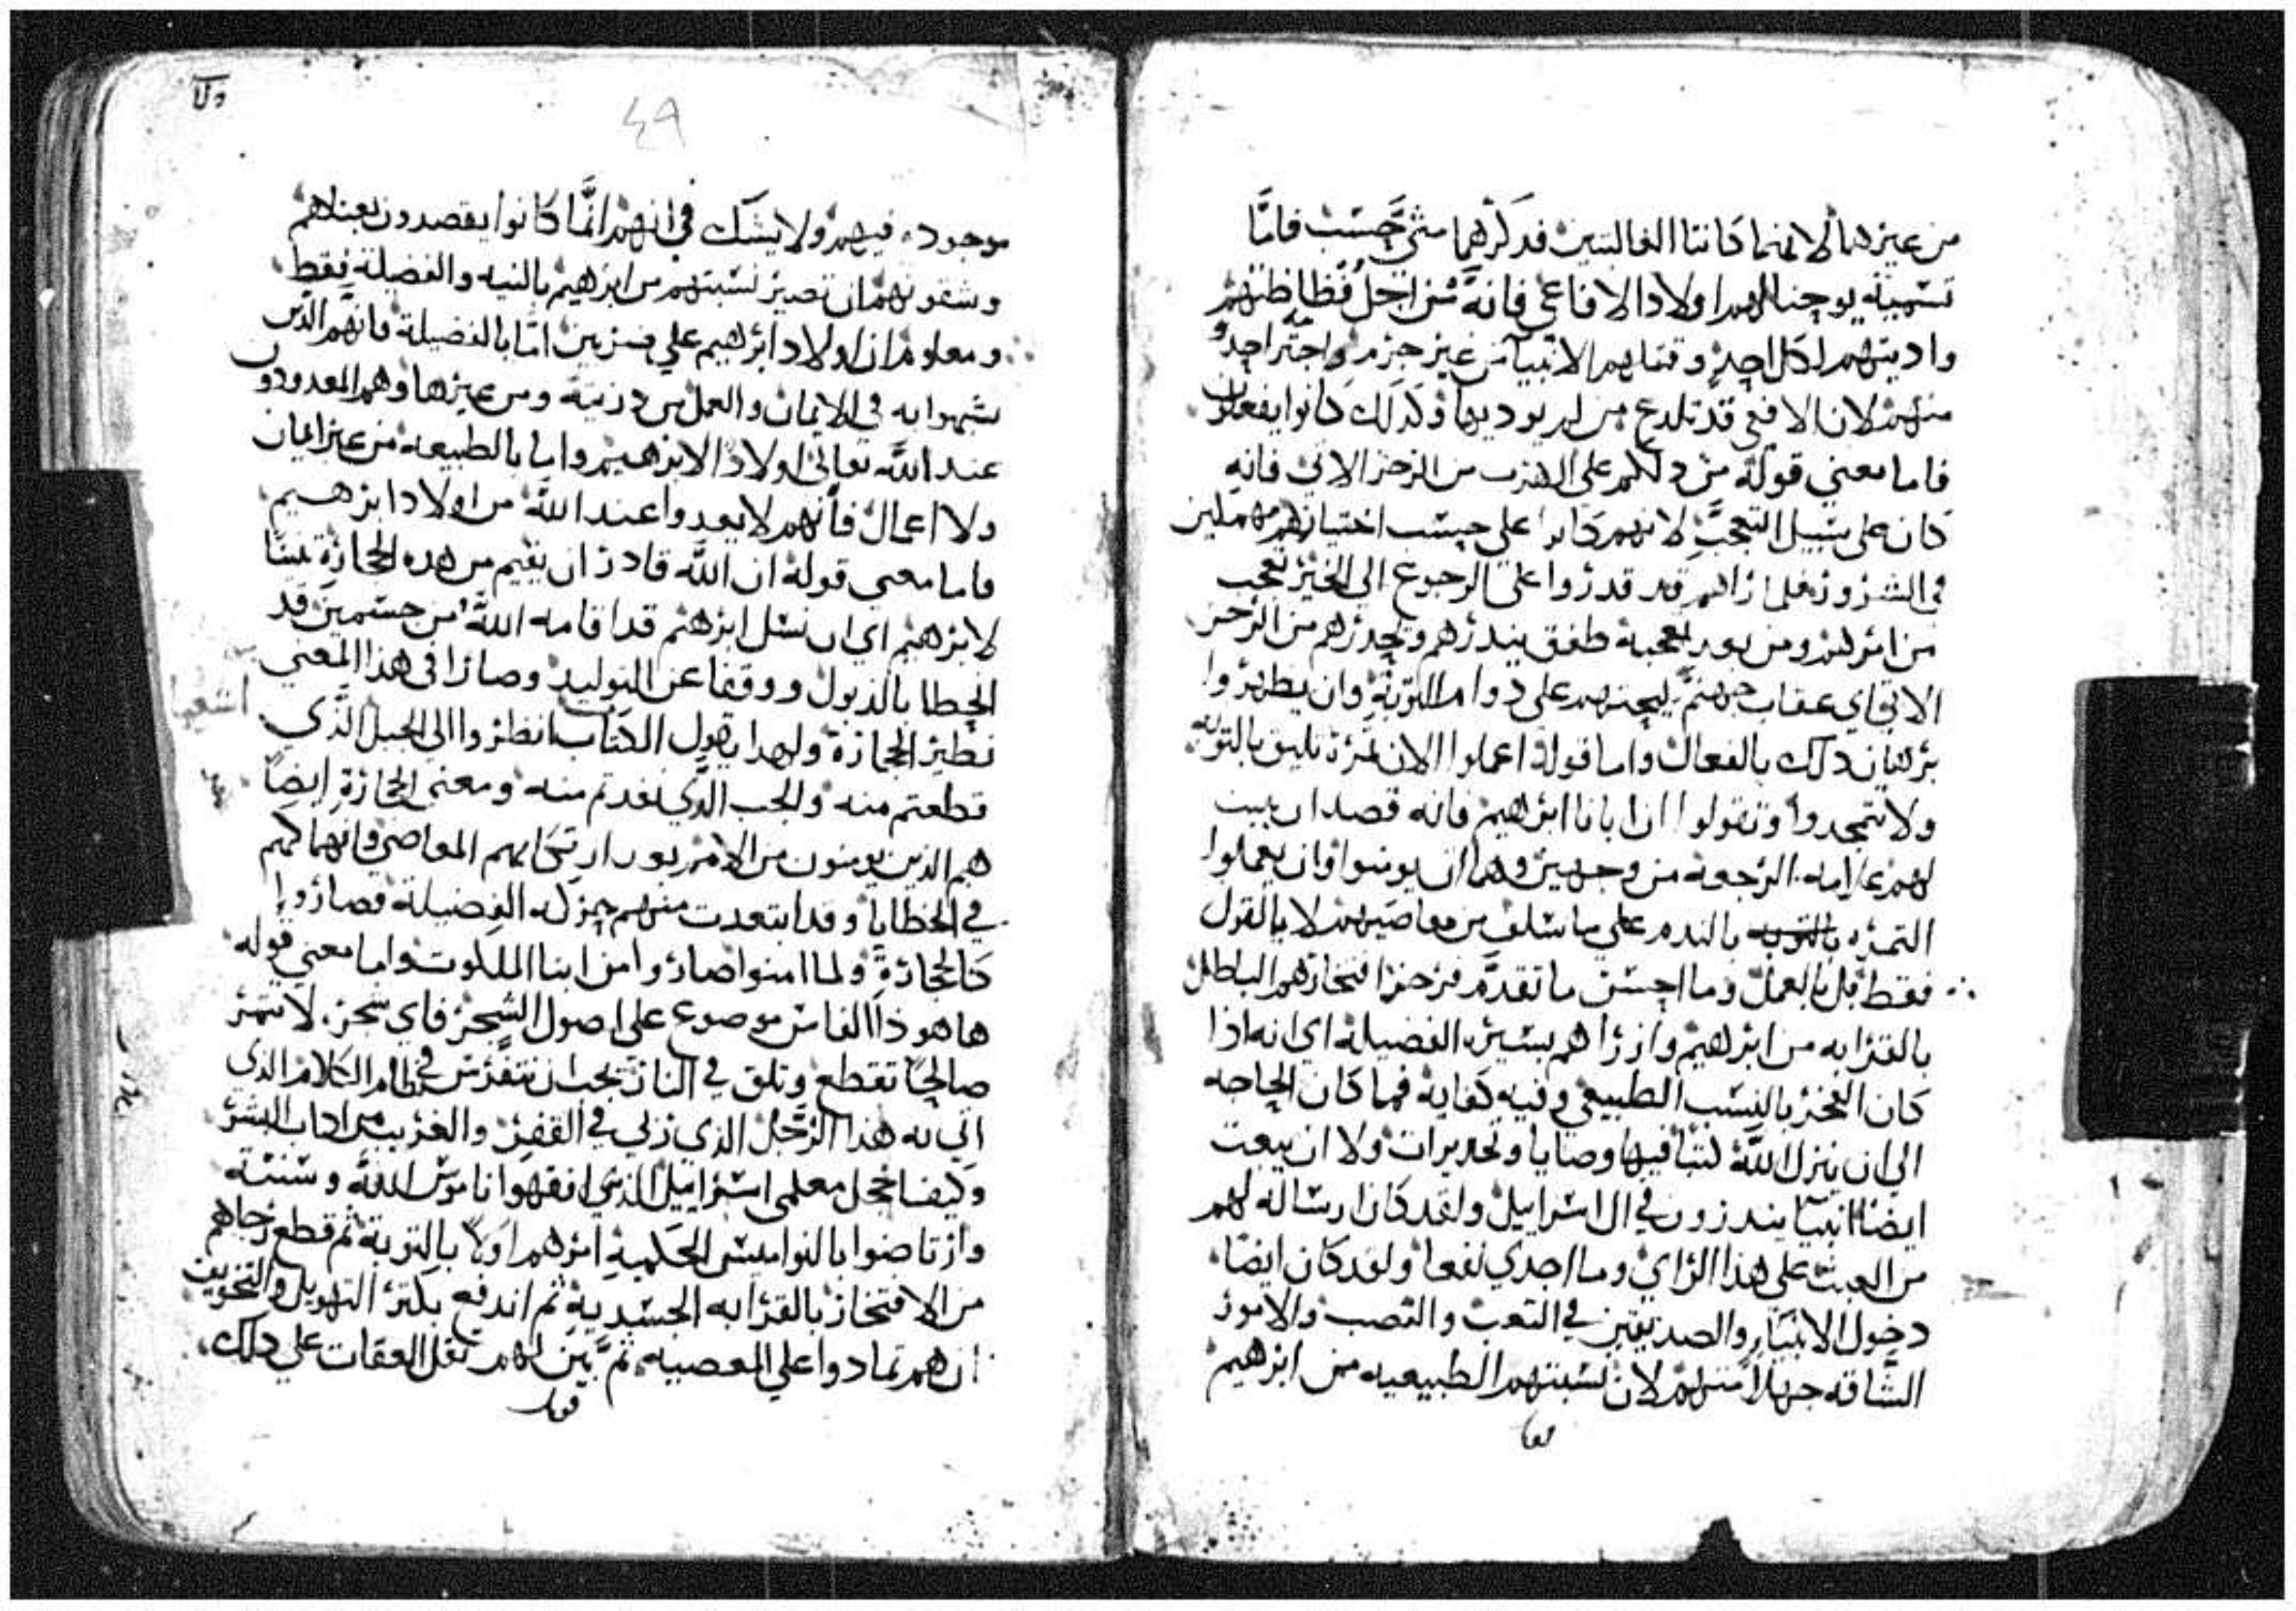 من غيرهما لانهما كانتا الغالبتين فذكرهما متي حسب فاما
تسميته يوحنا لهم اولاد الافاعي فانه من اجل فظاظتهم
واديتهم لكل احد وقتلهم الانبيآ من غير جرم واجترا احد
منهم لان الافعي قد تلدغ من لم يوديها وكذلك كانوا يفعلون
فاما معني قوله من دلكم على الهرب من الرجز الاتي فانه
كان على سبيل التعجب لانهم كانوا علي حسب اختيارهم مهملين
في الشرور فلما راهم قد قدروا على الرجوع الى الخير تعجب
من امرهم ومن بعد تعجبه طفق يندرهم ويحدرهم من الرجز
الاتي اي عقاب جهنم ليحثهم على دوام التوبة وان يظهروا
برهان دلك بالفعال واما قوله اعملوا الان ثمرة تليق بالتوبه
ولا تتمجدوا وتقولوا ان ابانا ابرهيم فانه قصد ان يبين
لهم علامه الرجعه من وجهين وهما ان يومنوا وان يعملوا
الثمره بالتوبه بالندم علي ما سلف من معاصيهم لا بالقول
فقط بل بالعمل وما احسن ما تقدم فزجر افتخارهم الباطل
بالقرابه من ابرهيم وازراهم بسير الفضيلة اي انه اذا
كان الفخر بالنسب الطبيعي وفيه كفاية فما كان الحاجه
الي ان ينزل الله كتبا فيها وصايا وتحديرات ولا ان يبعت
ايضا انبيا يندرون في ال اسراييل ولقد كان ارساله لهم
من العبث على هذا الراي وما اجدي نفعا ولقد كان ايضا
دخول الانبيآ والصديقين في التعب والنصب والامور
الشاقه جهلا منهم لان نسبتهم الطبيعيه من ابرهيم
٤٩
موجوده فيهم ولا يشك في انهم انما كانوا يقصدون بعنادهم
وشقوتهم ان تصير نسبتهم من ابرهيم بالنيه والفضيلة فقط
ومعلوم ان اولاد ابرهيم علي ضربين اما بالفضيلة فانهم الدين
تشبهوا به في الايمان والعمل من درتيه ومن غيرها وهم المعدودون
عند الله تعالى اولادا لابرهيم واما بالطبيعه من غير ايمان
ولا اعمال فانهم لا يعدوا عند الله من اولاد ابرهيم
فاما معنى قوله ان الله قادر ان يقيم من هده الحجارة بنينا
لابرهيم اي ان نسل ابرهيم قد اقامه الله من جسمين قد
اخطا بالذبول ووقفا عن التوليد وصارا في هذا المعني
نظير الحجارة ولهدا يقول الكتاب انظروا الى الجبل الدي
قطعتم منه والجب الدي نقدتم منه ومعنى الحجارة ايضا
هم الذين يومنون من الامم بعد ارتكابهم المعاصي وانهماكهم
في الخطايا وقد ابتعدت منهم حركه الفضيلة فصاروا
كالحجارة ولما امنوا صاروا من ابنا الملكوت واما معني قوله
ها هو ذا الفاس موضوع على اصول الشجر فاي شجرة لا تتمر
صالحا تقطع وتلق في النار يجب ان نتفرس في نظام الكلام الدي
اتي به هذا الرجل الذي ربي في القفر والغريب من اداب البشر
وكيف اخجل معلمى اسراييل الذين افقهوا ناموس الله وسننه
وارتاضوا بالنواميس الحكمية امرهم اولا بالتوبة ثم قطع رجاهم
من الافتخار بالقرابه الجسدية ثم اندفع يكثر التهويل والتخويف
ان هم تمادوا علي المعصيه ثم بين لهم ثقل العقاب علي دلك
قوله